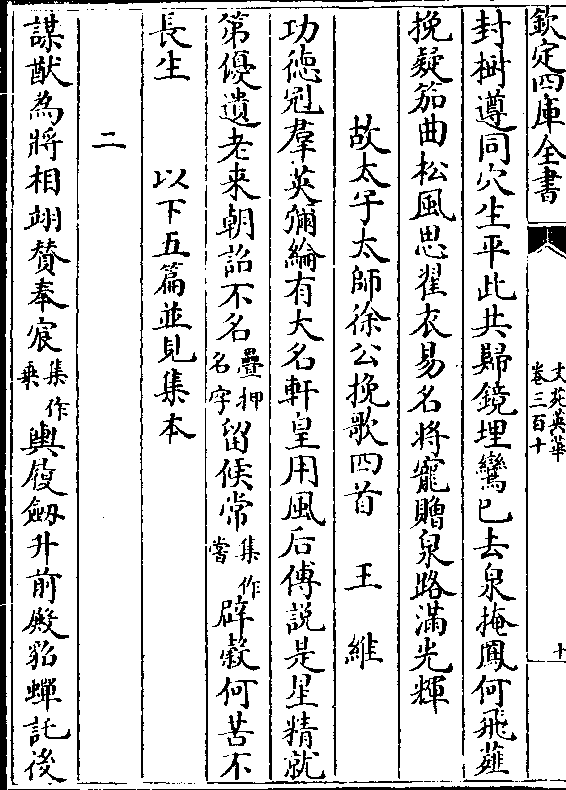 欽定四庫全書
文苑英華
卷三百十
十
封樹遵同穴生平此共歸鏡埋鸞已去泉掩鳳何飛薤
挽疑笳曲松風思翟衣易名將寵贈泉路滿光輝
故太子太師徐公挽歌四首　王維
功徳冠羣英彌綸有大名軒皇用風后傅說是星精就
第優遺老来朝詔不名疊押名字留侯常集作嘗辟穀何苦不
長生　以下五篇並見集本
二
謀猷為將相翊賛奉宸集作乗輿履劔升前殿貂蟬託後